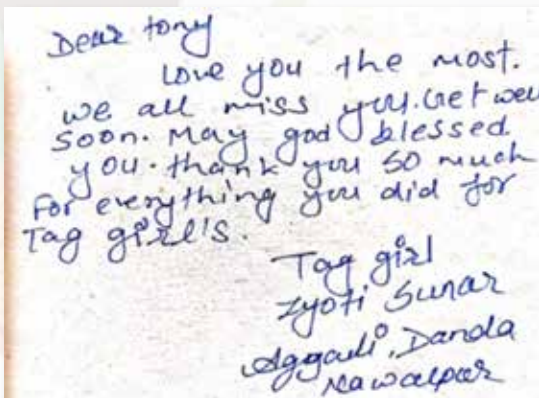 Dear tony
Love you the most.
we all miss you. Get well
soon. May god blessed
you. thank you so much
For everything you did for
Tag girl's.
Tag girl
Jyoti Sunar
Aggauli, Danda
Nawalpur